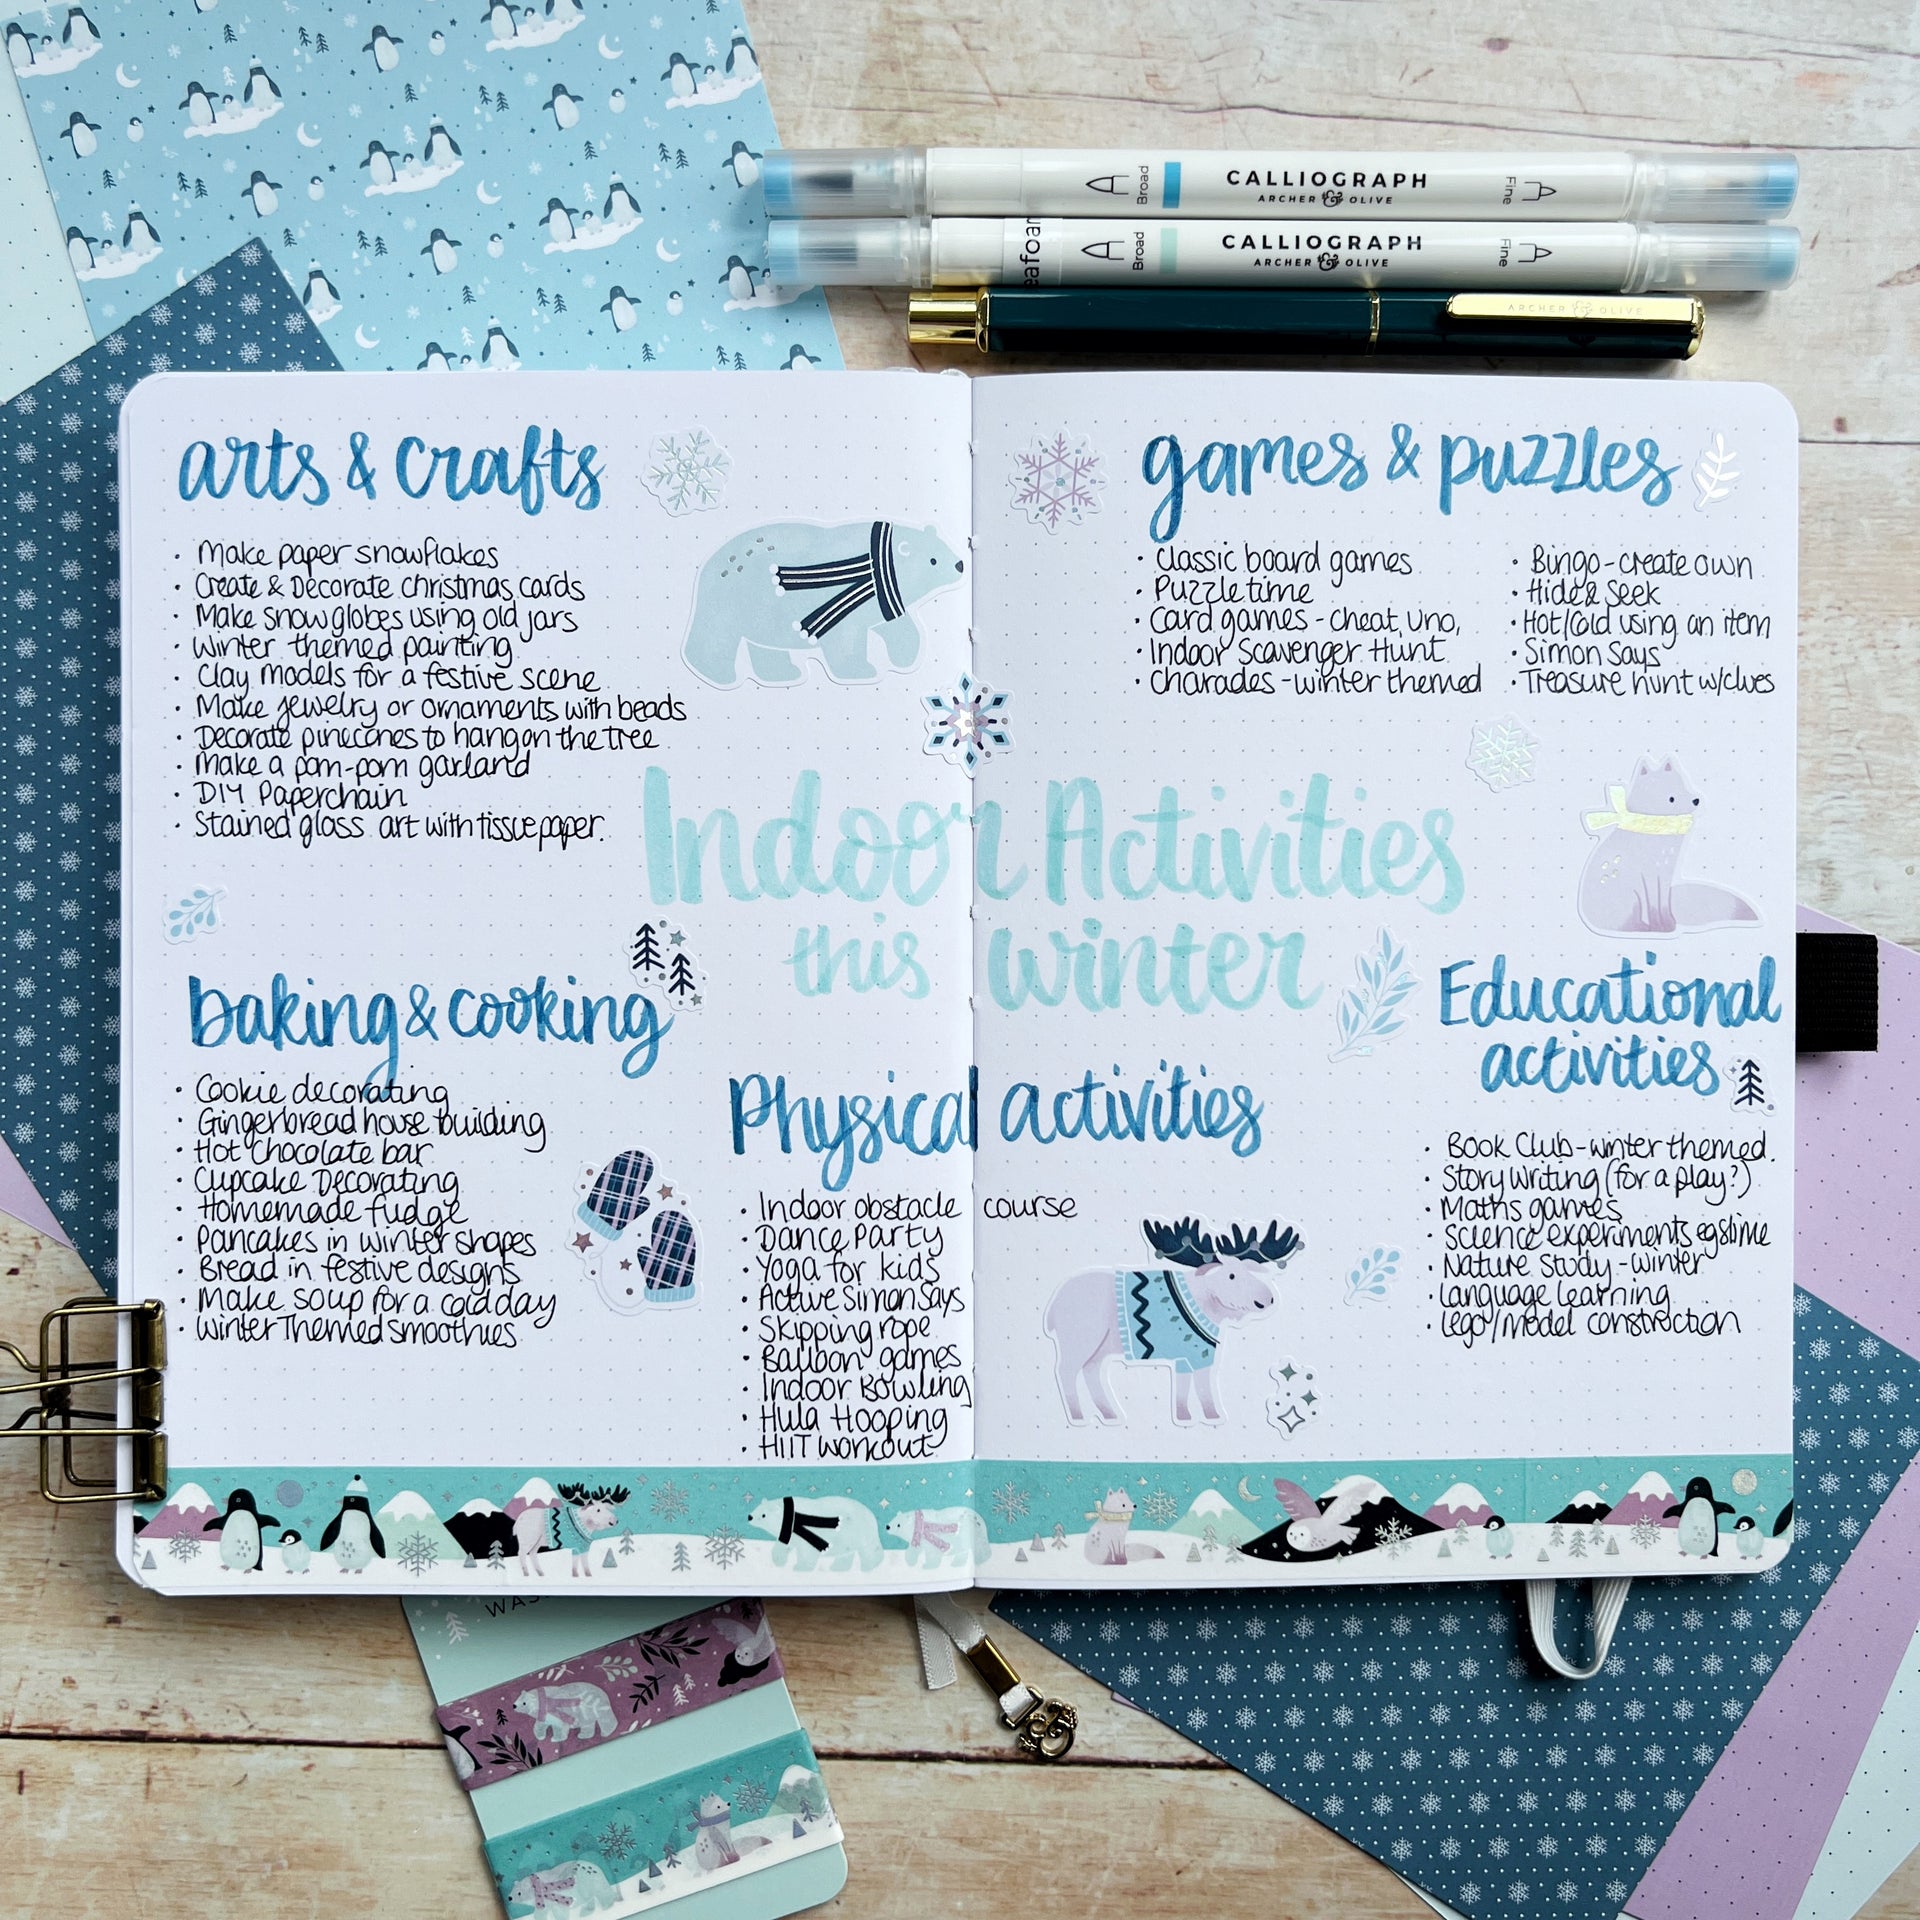 CALLIOGRAPH
ARCHER & OLIVE
Broad
Fine
CALLIOGRAPH
ARCHER & OLIVE
Broad
Fine
eafoa
ARCHER & OLIVE
arts & crafts
· Make paper snowflakes
· Create & Decorate christmas cards
· Make snow globes using old jars
· Winter themed painting
· Clay models for a festive scene
· Make jewelry or ornaments with beads
· Decorate pinecones to hang on the tree
· Make a pom-pom garland
· DIY Paperchain
· Stained glass art with tissue paper.
games & puzzles
· Classic board games
· Puzzle time
· Card games - cheat, uno,
· Indoor Scavenger Hunt
· Charades - winter themed
· Bingo - create own
· Hide & Seek
· Hot/Cold using an item
· Simon Says
· Treasure hunt w/clues
Indoor Activities
this winter
baking & cooking
· Cookie decorating
· Gingerbread house building
· Hot chocolate bar
· Cupcake Decorating
· Homemade fudge
· Pancakes in winter shapes
· Bread in festive designs
· Make soup for a cold day
· Winter Themed smoothies
Physical activities
· Indoor obstacle course
· Dance Party
· Yoga for kids
· Active Simon Says
· Skipping rope
· Balloon games
· Indoor Bowling
· Hula Hooping
· HIIT workout
Educational
activities
· Book Club - winter themed.
· Story Writing (for a play?)
· Maths games
· Science experiments eg slime
· Nature Study - winter
· Language learning
· Lego/model construction
WAS